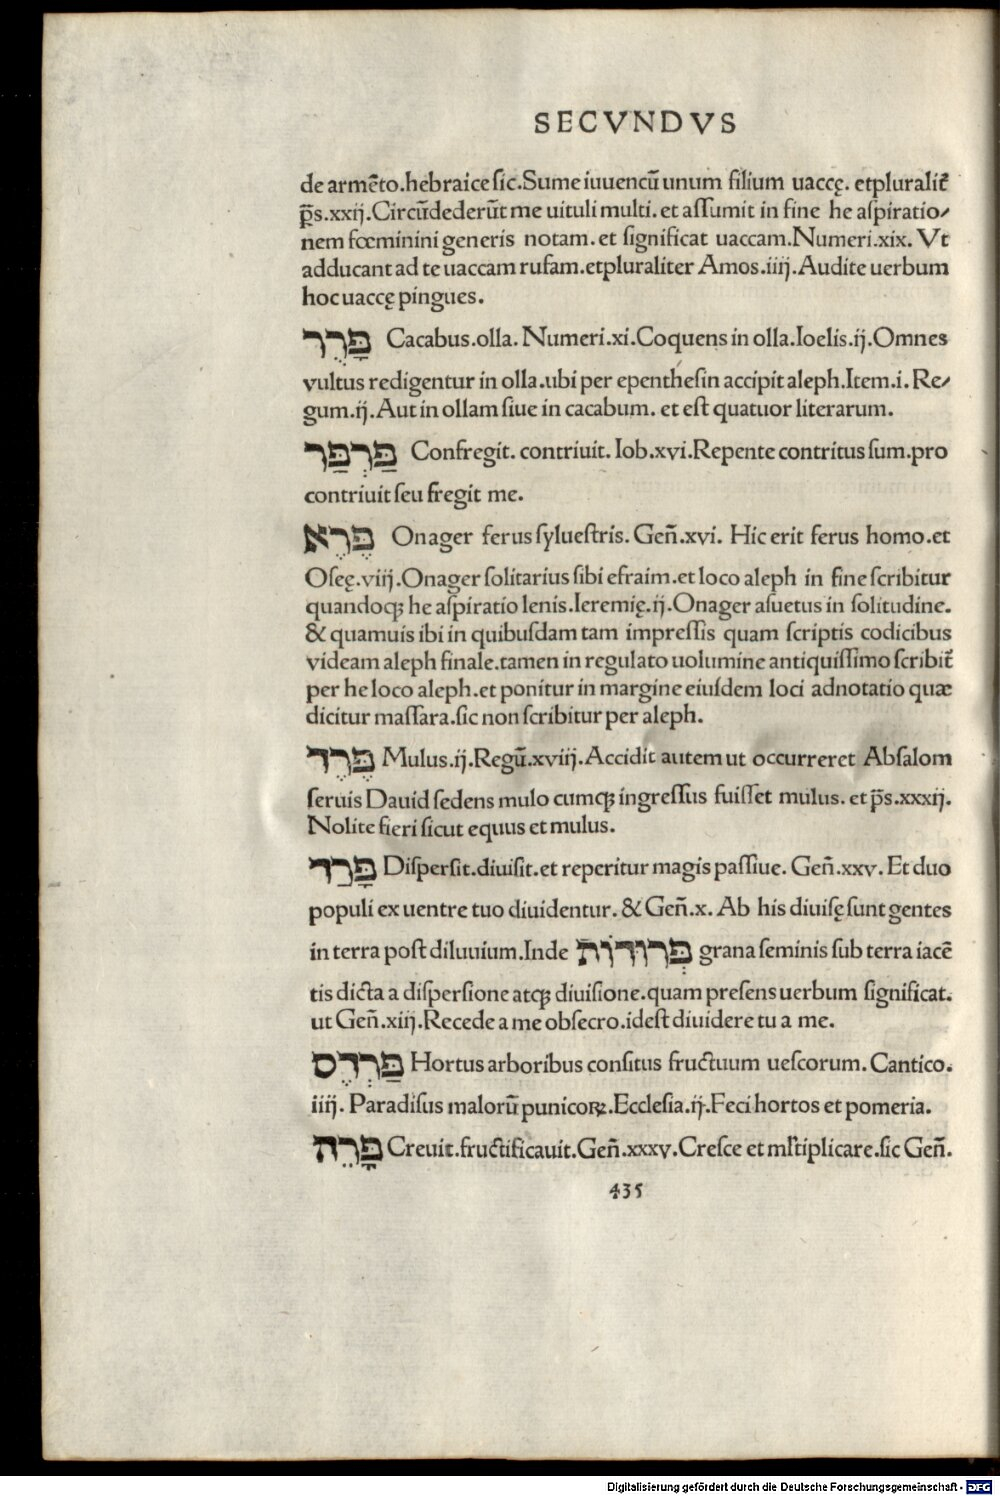 SECVNDVS
de armẽto.hebraice ſic.Sume iuuencũ unum filium uaccę. etpluralit̃
p̃s.xxij.Circũdederũt me uituli multi. et aſſumit in fine he aſpiratio⸗
nem fœminini generis notam. et ſignificat uaccam.Numeri.xix. Vt
adducant ad te uaccam rufam.etpluraliter Amos.iiij.Audite uerbum
hoc uaccę pingues.
פָּרֻר Cacabus.olla. Numeri.xi.Coquens in olla.Ioelis.ij.Omnes
vultus redigentur in olla.ubi per epentheſin accipit aleph.Item.i. Re⸗
gum.ij.Aut in ollam ſiue in cacabum. et eſt quatuor literarum.
פַּרְפַּר Confregit. contriuit. Iob.xvi.Repente contritus ſum.pro
contriuit ſeu fregit me.
פֶּרֶא Onager ferus ſylueſtris. Geñ.xvi. Hic erit ferus homo.et
Oſeę.viij.Onager ſolitarius ſibi efraim.et loco aleph in fine ſcribitur
quandoqꝫ he aſpiratio lenis.Ieremię.ij.Onager aſuetus in ſolitudine.
& quamuis ibi in quibuſdam tam impreſſis quam ſcriptis codicibus
videam aleph finale.tamen in regulato uolumine antiquiſſimo ſcribit̃
per he loco aleph.et ponitur in margine eiuſdem loci adnotatio quæ
dicitur maſſara.ſic non ſcribitur per aleph.
פֶּרֶד Mulus.ij.Regũ.xviij.Accidit autem ut occurreret Abſalom
ſeruis Dauid ſedens mulo cumqꝫ ingreſſus fuiſſet mulus. et p̃s.xxxij.
Nolite fieri ſicut equus et mulus.
פָּרַד Diſperſit.diuiſit.et reperitur magis paſſiue. Geñ.xxv. Et duo
populi ex uentre tuo diuidentur. & Geñ.x. Ab his diuiſę ſunt gentes
in terra poſt diluuium.Inde פְּרוּדוֹת grana ſeminis ſub terra iacẽ
tis dicta a diſperſione atqꝫ diuiſione.quam preſens uerbum ſignificat.
ut Geñ.xiij.Recede a me obſecro.ideſt diuidere tu a me.
פַּרְדֶס Hortus arboribus conſitus fructuum ueſcorum. Cantico.
iiij. Paradiſus malorũ punicoꝝ.Eccleſia.ij.Feci hortos et pomeria.
פָּרֵה Creuit.fructificauit.Geñ.xxxv.Creſce et ml̃tiplicare.ſic Geñ.
435
Digitalisierung gefördert durch die Deutsche Forschungsgemeinschaft - DFG